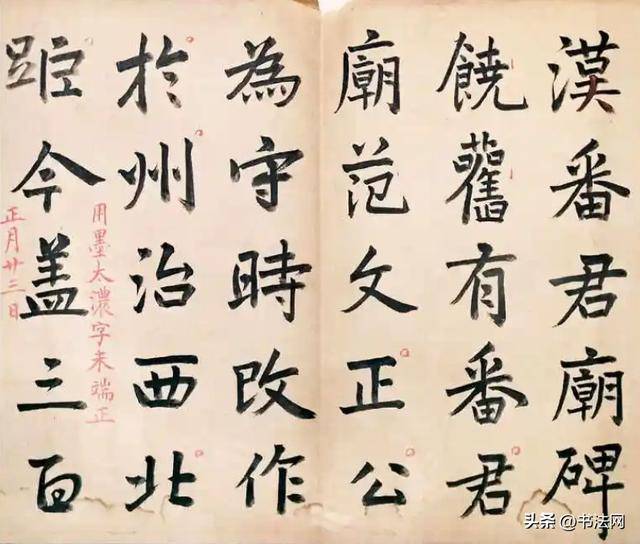 漢番君廟碑
饒舊有番君
廟范文正公
為守時改作
於州治西北
距今蓋三百
用墨太濃字未端正
正月廿三日
头条 @书法网